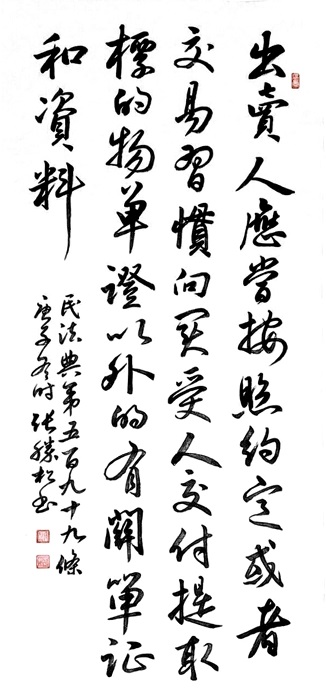 出賣人應當按照約定或者
交易習慣向买受人交付提取
標的物单證以外的有關單证
和資料
民法典第五百九十九條
庚子冬时张松书